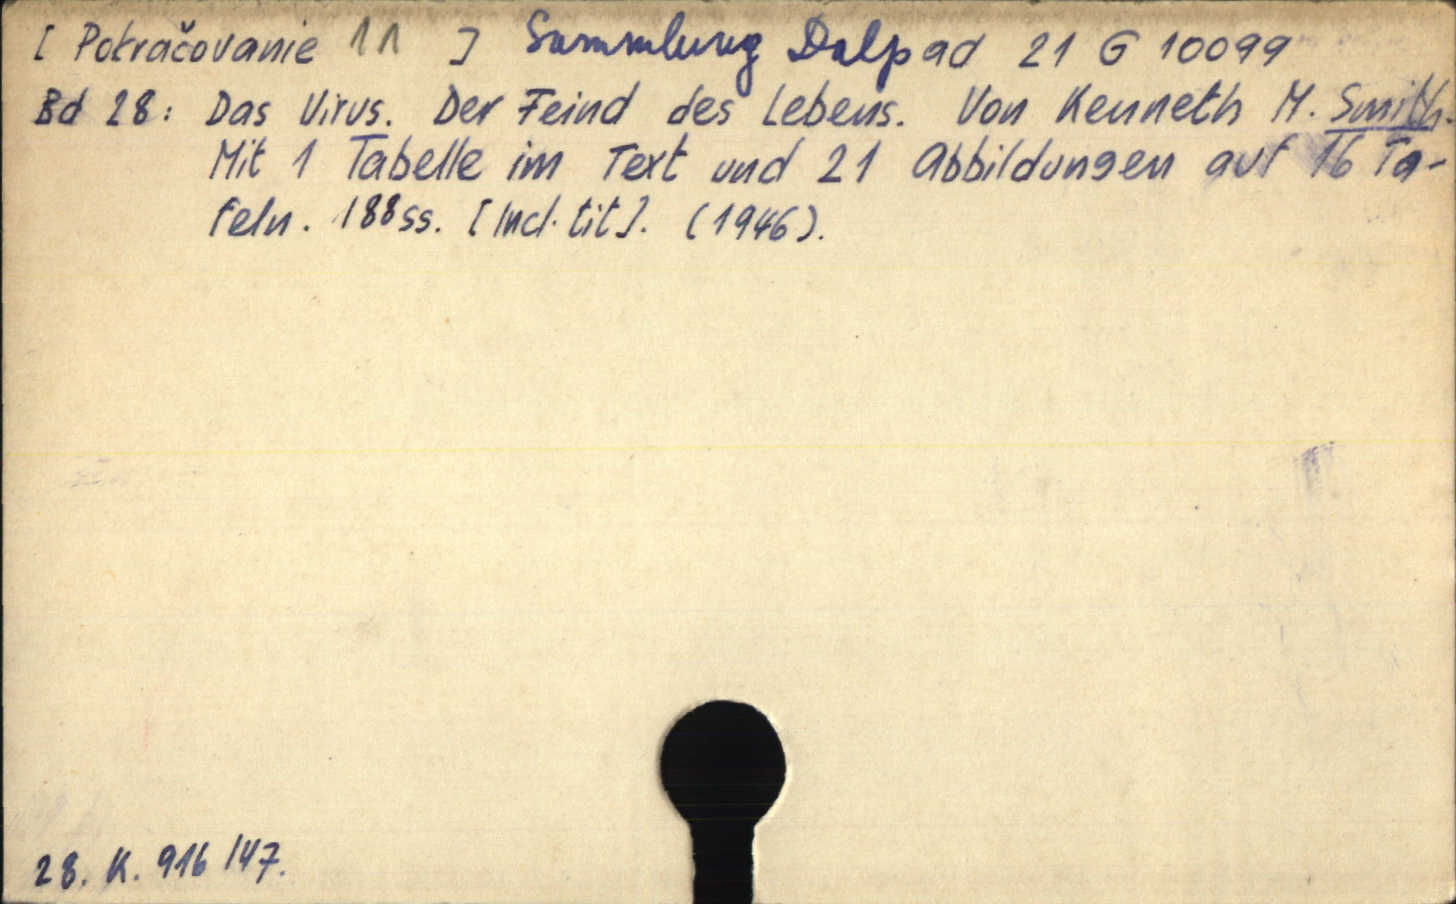 [ Pokračovanie 11 ] Sammlung Dalp ad 21 G 10099
Bd 28: Das Virus. Der Feind des Lebens. Von Kenneth M. Smith.
Mit 1 Tabelle im Text und 21 Abbildungen auf 16 Ta-
feln. 188 ss. [Incl. tit]. (1946).
28. K. 916/47.